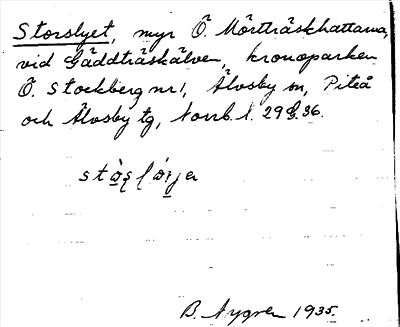 Storslyet, myr Ö. Mörtträskhattarna,
vid Gäddträskälven, kronoparken
Ö. Stockberg nr 1, Älvsby sn, Piteå
och Älvsby tg, Norrb. l. 29 36.
B. Nygren 1935.